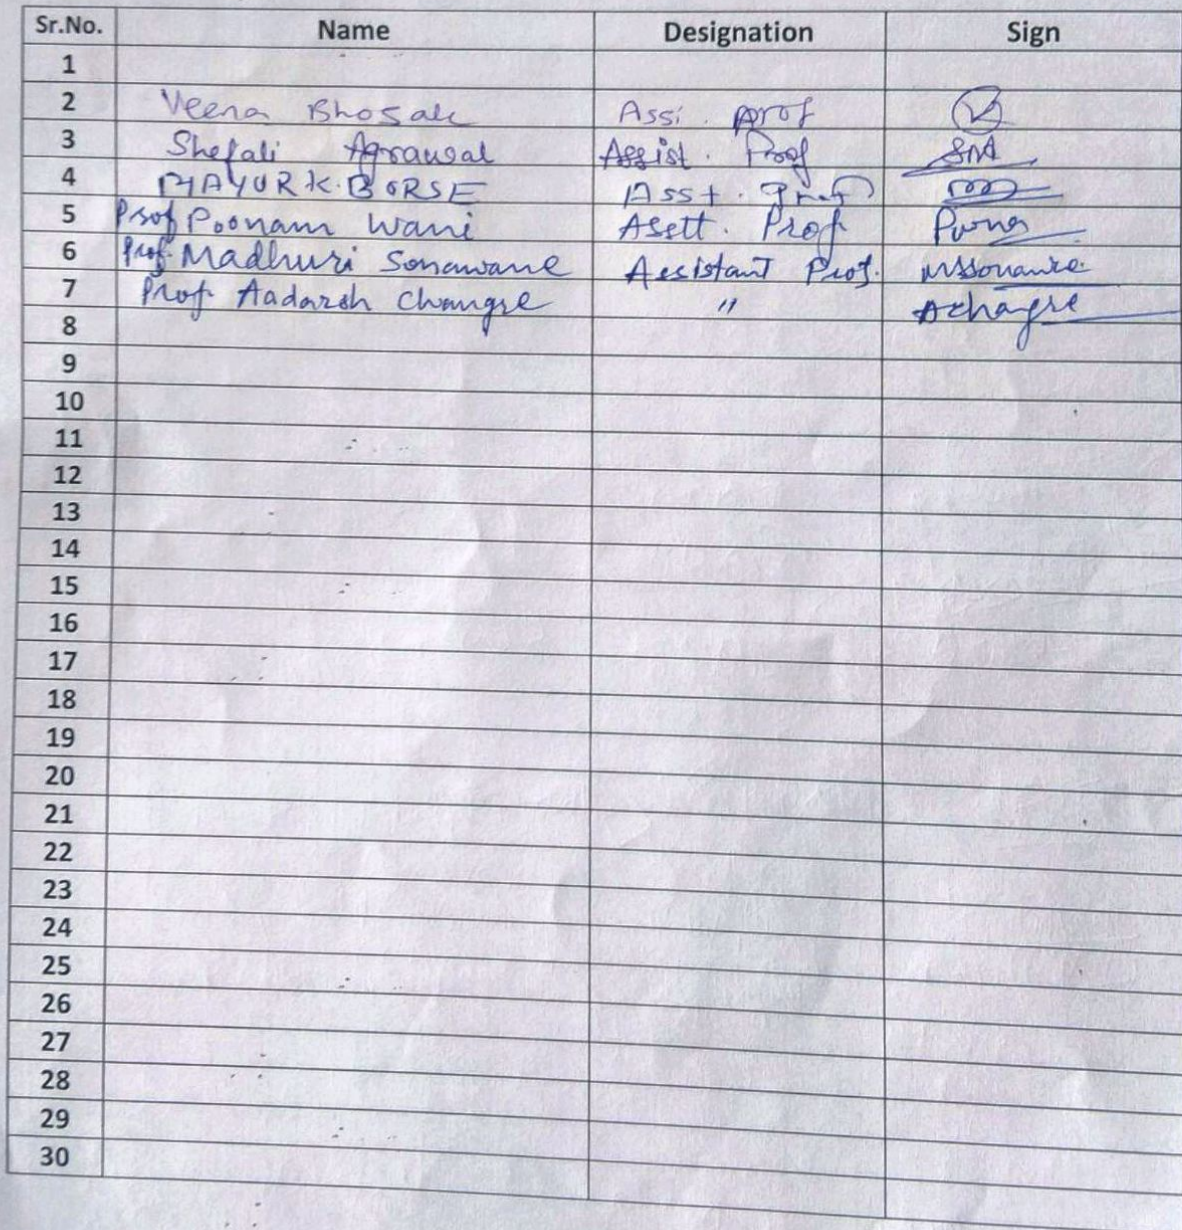 Sr.No. Name Designation Sign
1
2 Veena Bhosale Assi. prof
3 Shefali Agrawal Assist. Prof SNA
4 MAYUR K. BORSE Asst. Prof
5 Prof Poonam Wani Asett. Prof
6 Prof. Madhuri Sonawane Assistant Prof. MSSonawne
7 Prof. Aadarsh Changre " Achagre
8
9
10
11
12
13
14
15
16
17
18
19
20
21
22
23
24
25
26
27
28
29
30